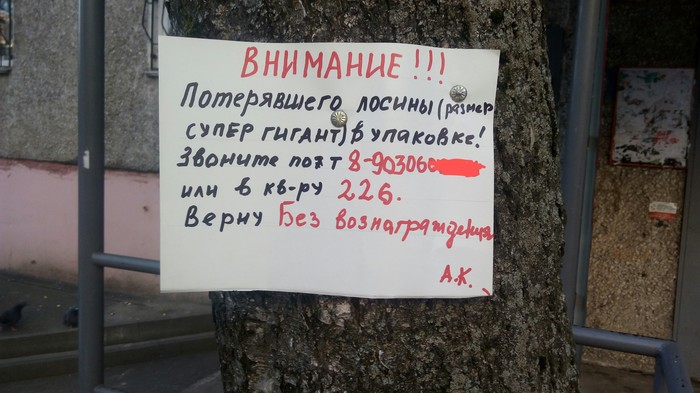 ВНИМАНИЕ!!!
Потерявшего лосины (размер
СУПЕР ГИГАНТ) в упаковке!
Звоните по т 8-903060
или в кв-ру 226.
Верну Без вознаграждения
А.К.